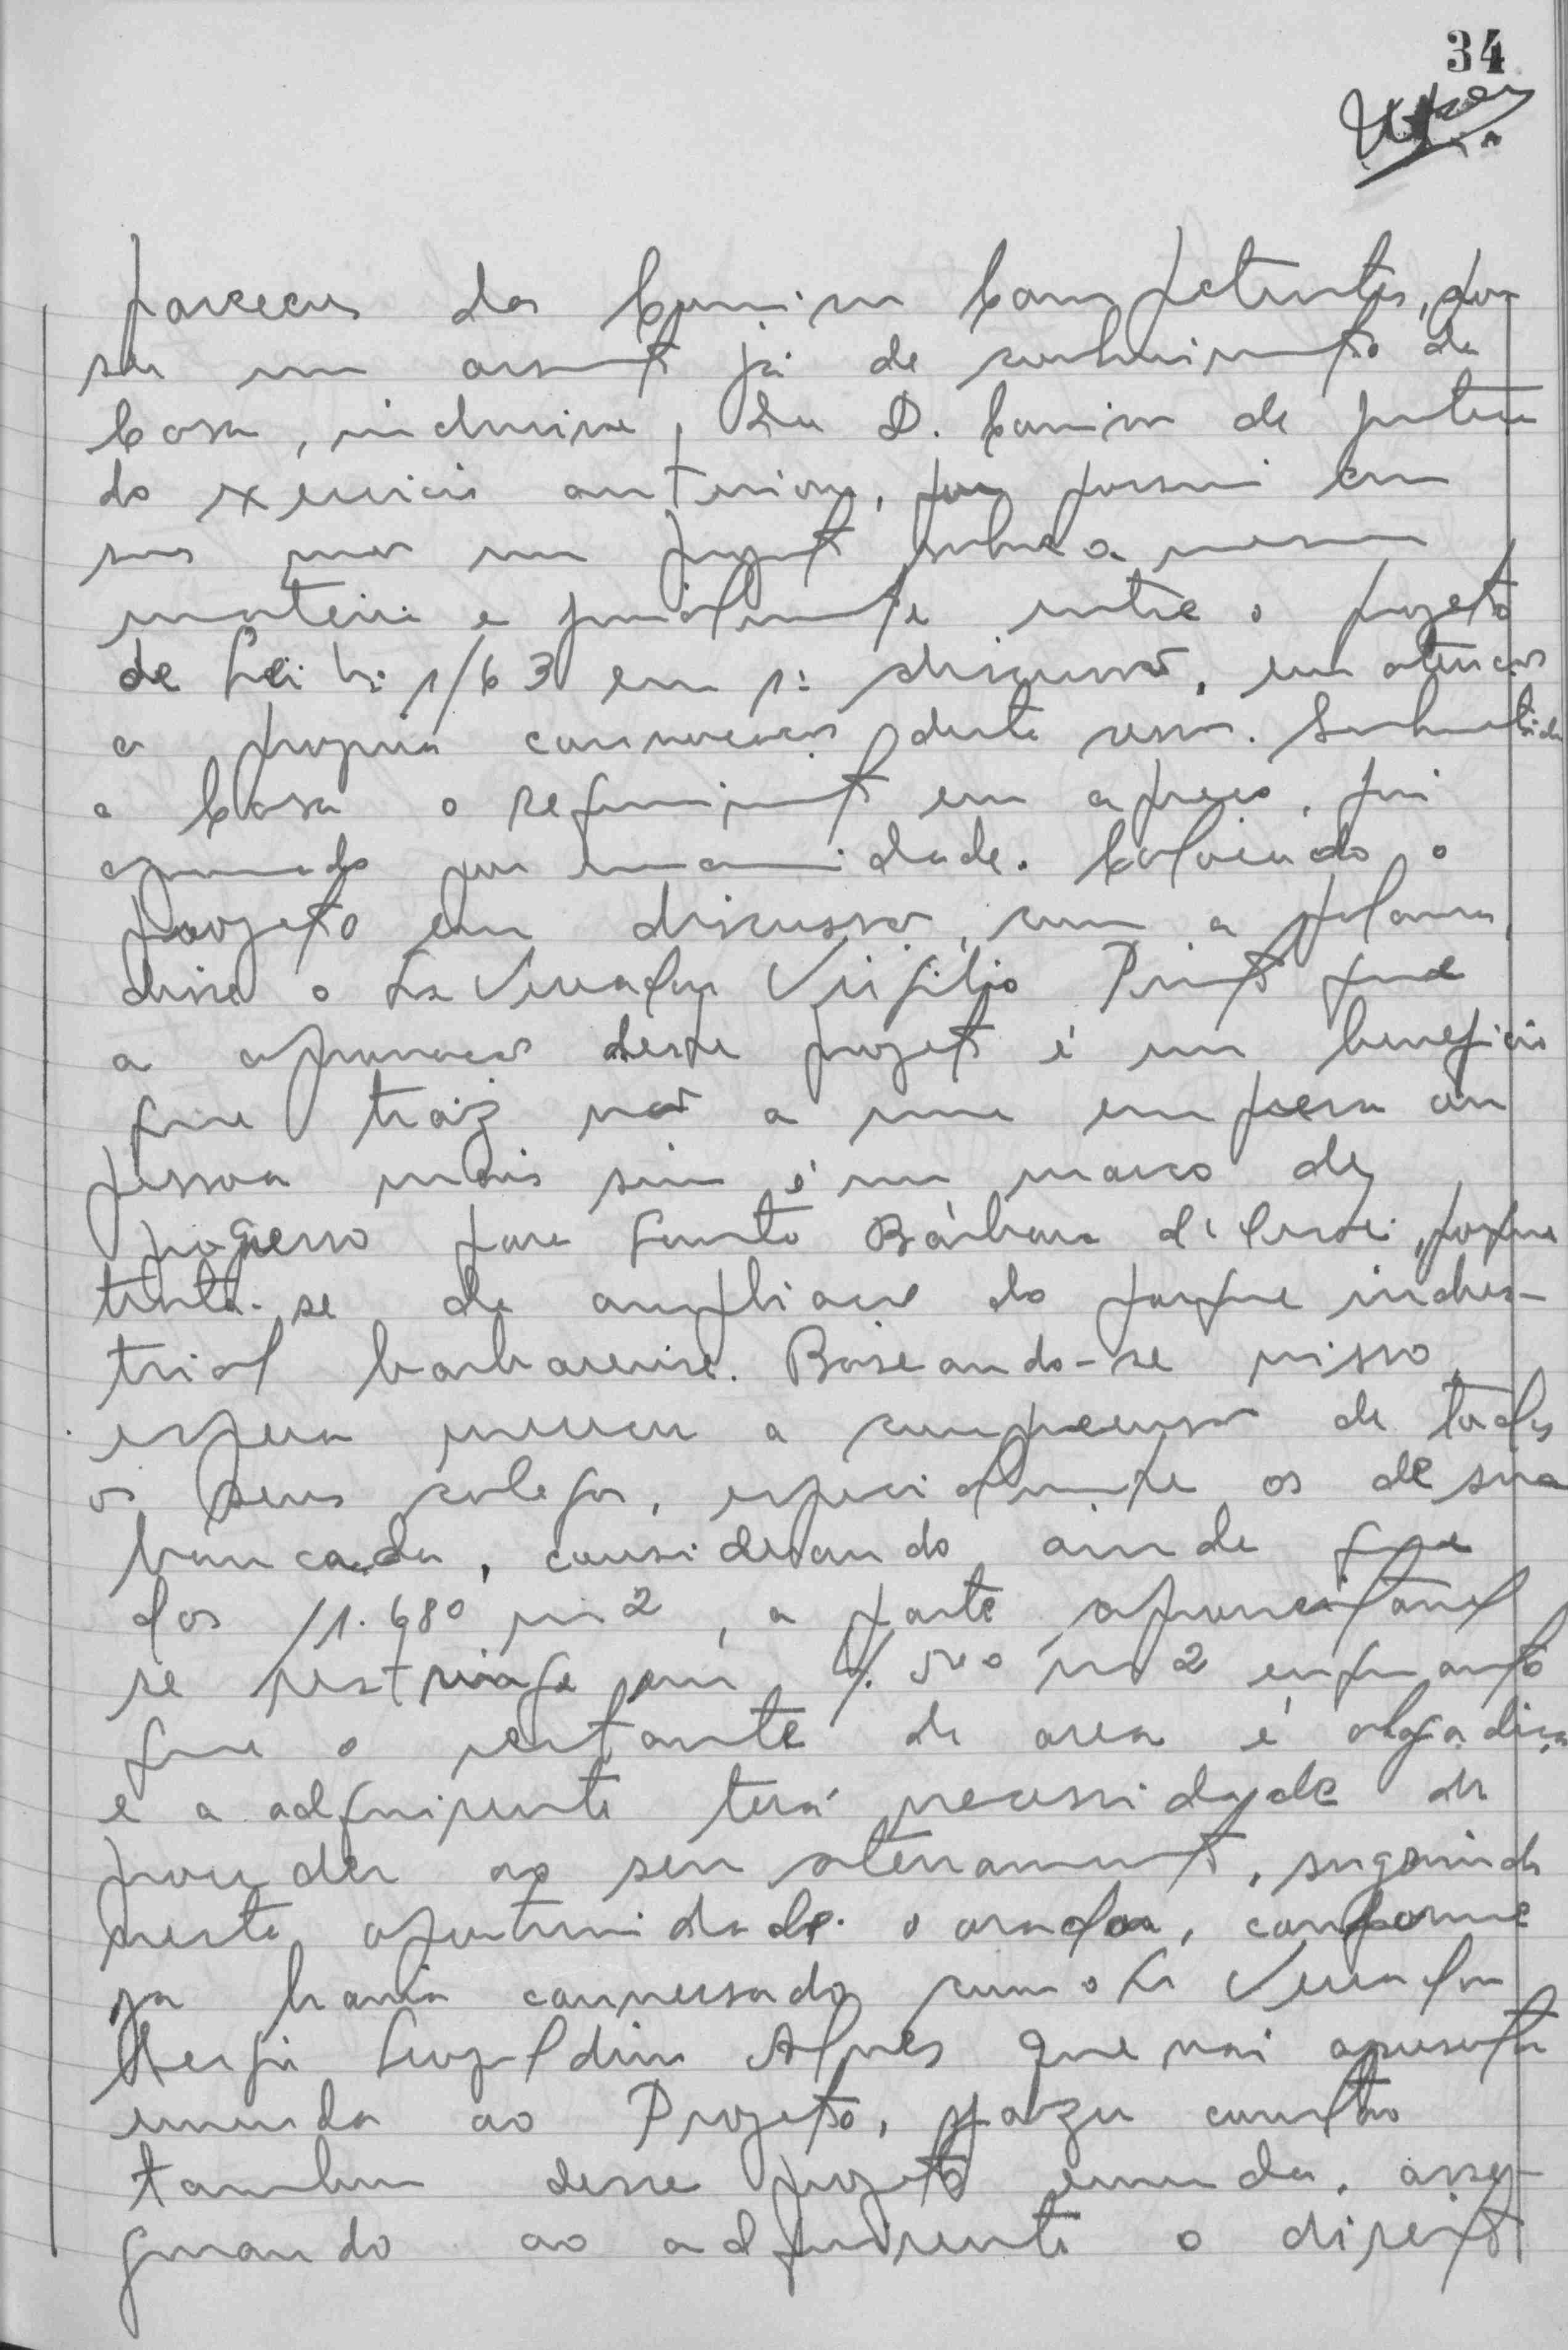 34
parecer da Comissão Competentes, por
ser um assunto já de conhecimento da
Casa, inclusive, da D. Comissão de Justiça
do exercicio anterior, por possui em
suas um projeto sobre a mesma
materia e finalmente entre o projeto
de Lei n: 1/63 em 1: discussão, em atenção
a propria convocação desta sessão. Submetida
a Casa o requerimento em apreço, foi
aprovado por unanimidade. Colocado o
projeto em discussão, com a palavra
disse o Sr Vereador Virgilio Pinto que
a aprovação deste projeto é um beneficio
que traiz não a uma empresa ou
pessoa mais sim é um marco de
progresso para Santa Bárbara d'Oeste, porque
trata-se de ampliação do parque indus-
trial barbarense. Baseando-se nisso,
espera merecer a compreensão de todos
os seus colegas, especialmente os de sua
bancada, considerando ainda que
dos 11.680 m2, a parte aproveitavel
se restringe em 7.500 m2 enquanto
que o restante da area é alagadiça
e a adquirente terá necessidade de
proceder ao seu aterramento, sugerindo
nesta oportunidade o orador, conforme
ja havia conversado com o Sr Vereador
Leopoldino Alves que vai apresentar
emenda ao Projeto, fazer constar
tambem desse projeto emenda, asse-
gurando ao adquirente o direito